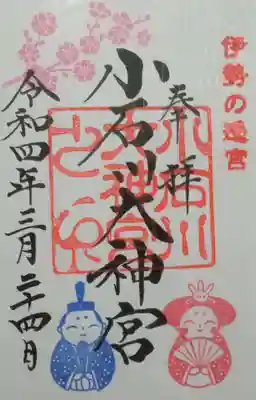 伊勢の遥宮
奉拝
小石川大神宮
小石川
大神宮
之印
令和四年三月二十四日